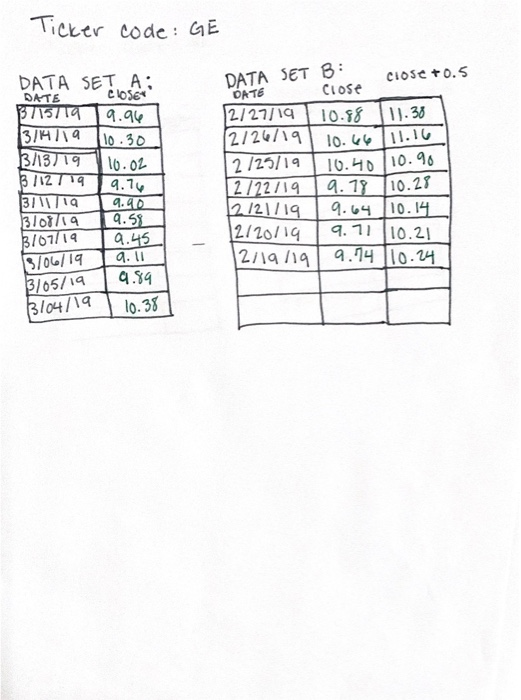 Ticker code: GE
DATA SET A:
DATE close
3/15/19 9.96
3/14/19 10.30
3/13/19 10.02
3/12/19 9.76
3/11/19 9.90
3/08/19 9.58
3/07/19 9.45
3/06/19 9.11
3/05/19 9.89
3/04/19 10.38
DATA SET B:
DATE close close +0.5
2/27/19 10.88 11.38
2/26/19 10.66 11.16
2/25/19 10.40 10.90
2/22/19 9.78 10.28
2/21/19 9.64 10.14
2/20/19 9.71 10.21
2/19/19 9.74 10.24